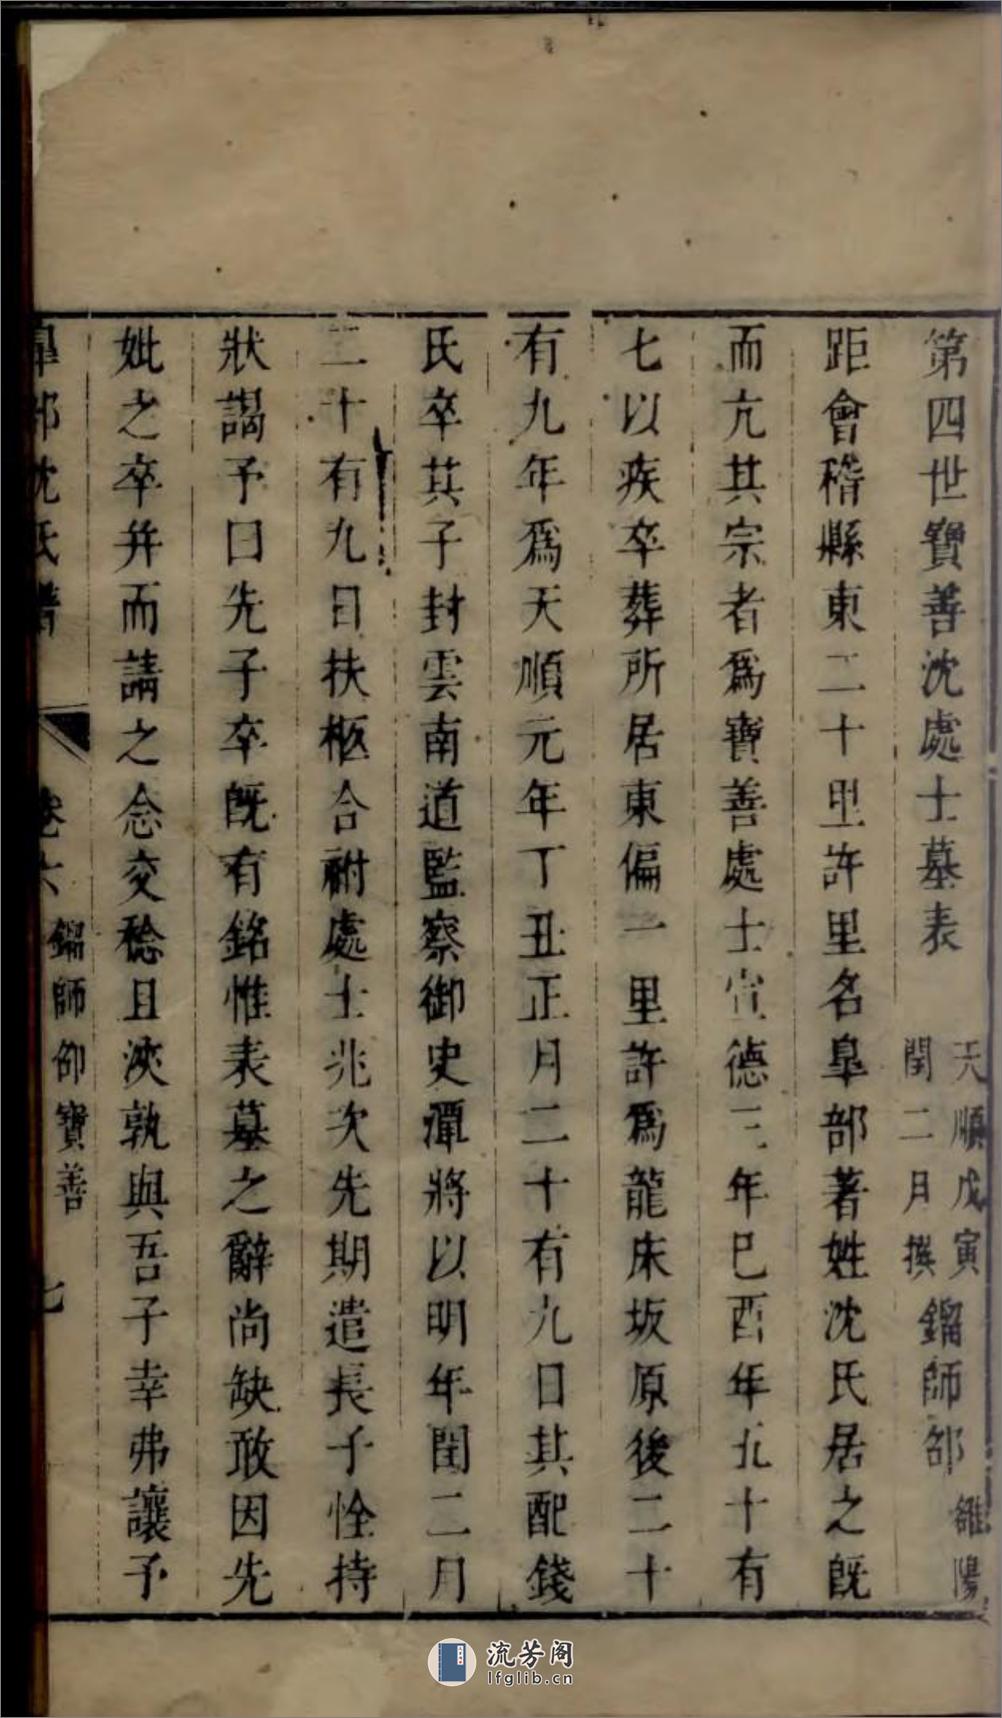 第四世寶善沈處士墓表 天順戊寅閏二月撰 鎦師邵 雒陽
距會稽縣東二十里許里名皐部著姓沈氏居之旣
而亢其宗者爲寶善處士宣德三年巳酉年九十有
七以疾卒葬所居東偏一里許爲龍床坂原後二十
有九年爲天順元年丁丑正月二十有九日其配錢
氏卒其子封雲南道監察御史潭將以明年閏二月
二十有九日扶柩合祔處士兆次先期遣長子恮持
狀謁予曰先子卒旣有銘惟表墓之辭尚缺敢因先
妣之卒并而請之念交稔且浹孰與吾子幸弗讓予
皐部沈氏譜 卷六 鎦師邵寶善 七
流芳阁
lfglib.cn